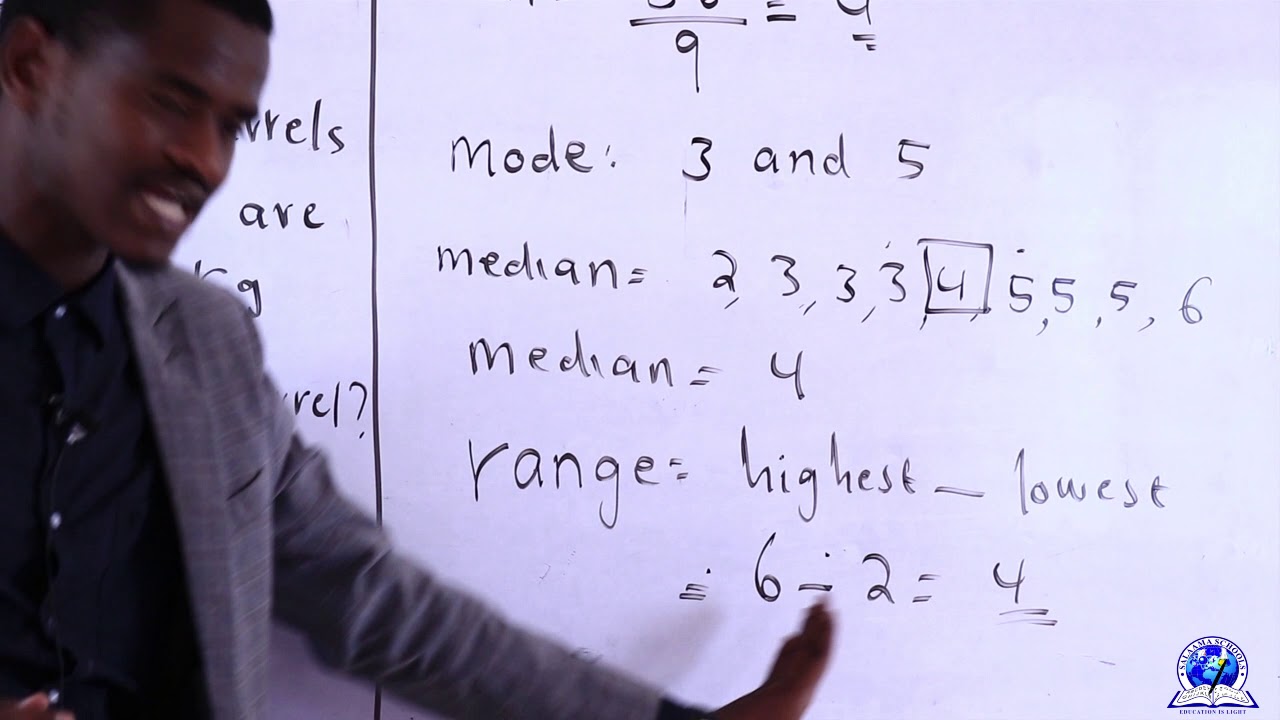 9 = 4
rrels
are
kg
rel?
mode: 3 and 5
median= 2, 3, 3, 3, 4, 5, 5, 5, 6
median = 4
range= highest - lowest
= 6 - 2 = 4
SALAAMA SCHOOL
EDUCATION IS LIGHT